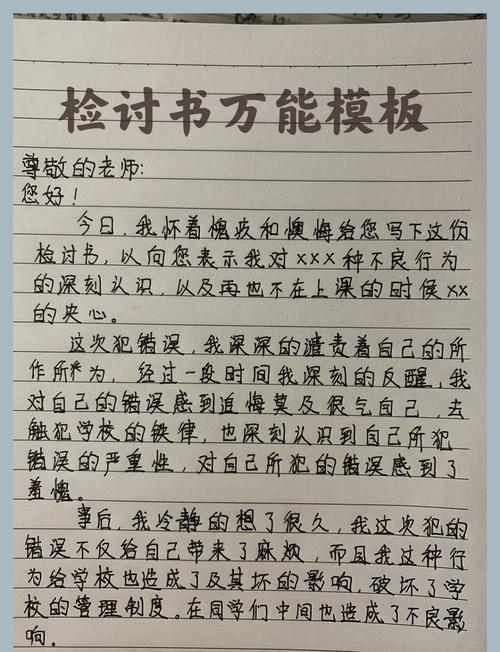 检讨书万能模板
尊敬的老师:
您好!
今日,我怀着愧疚和懊悔给您写下这份
检讨书,以向您表示我对×××种不良行为
的深刻认识,以及再也不在上课的时候××
的决心。
这次犯错误,我深深的谴责着自己的所
作所为,经过一段时间我深刻的反醒,我
对自己的错误感到追悔莫及很气自己,去
触犯学校的铁律,也深刻认识到自己所犯
错误的严重性,对自己所犯的错误感到了
羞愧。
事后,我冷静的想了很久,我这次犯的
错误不仅给自己带来了麻烦,而且我这种行
为给学校也造成了及其坏的影响,破坏了学
校的管理制度。在同学们中间也造成了不良影
响。